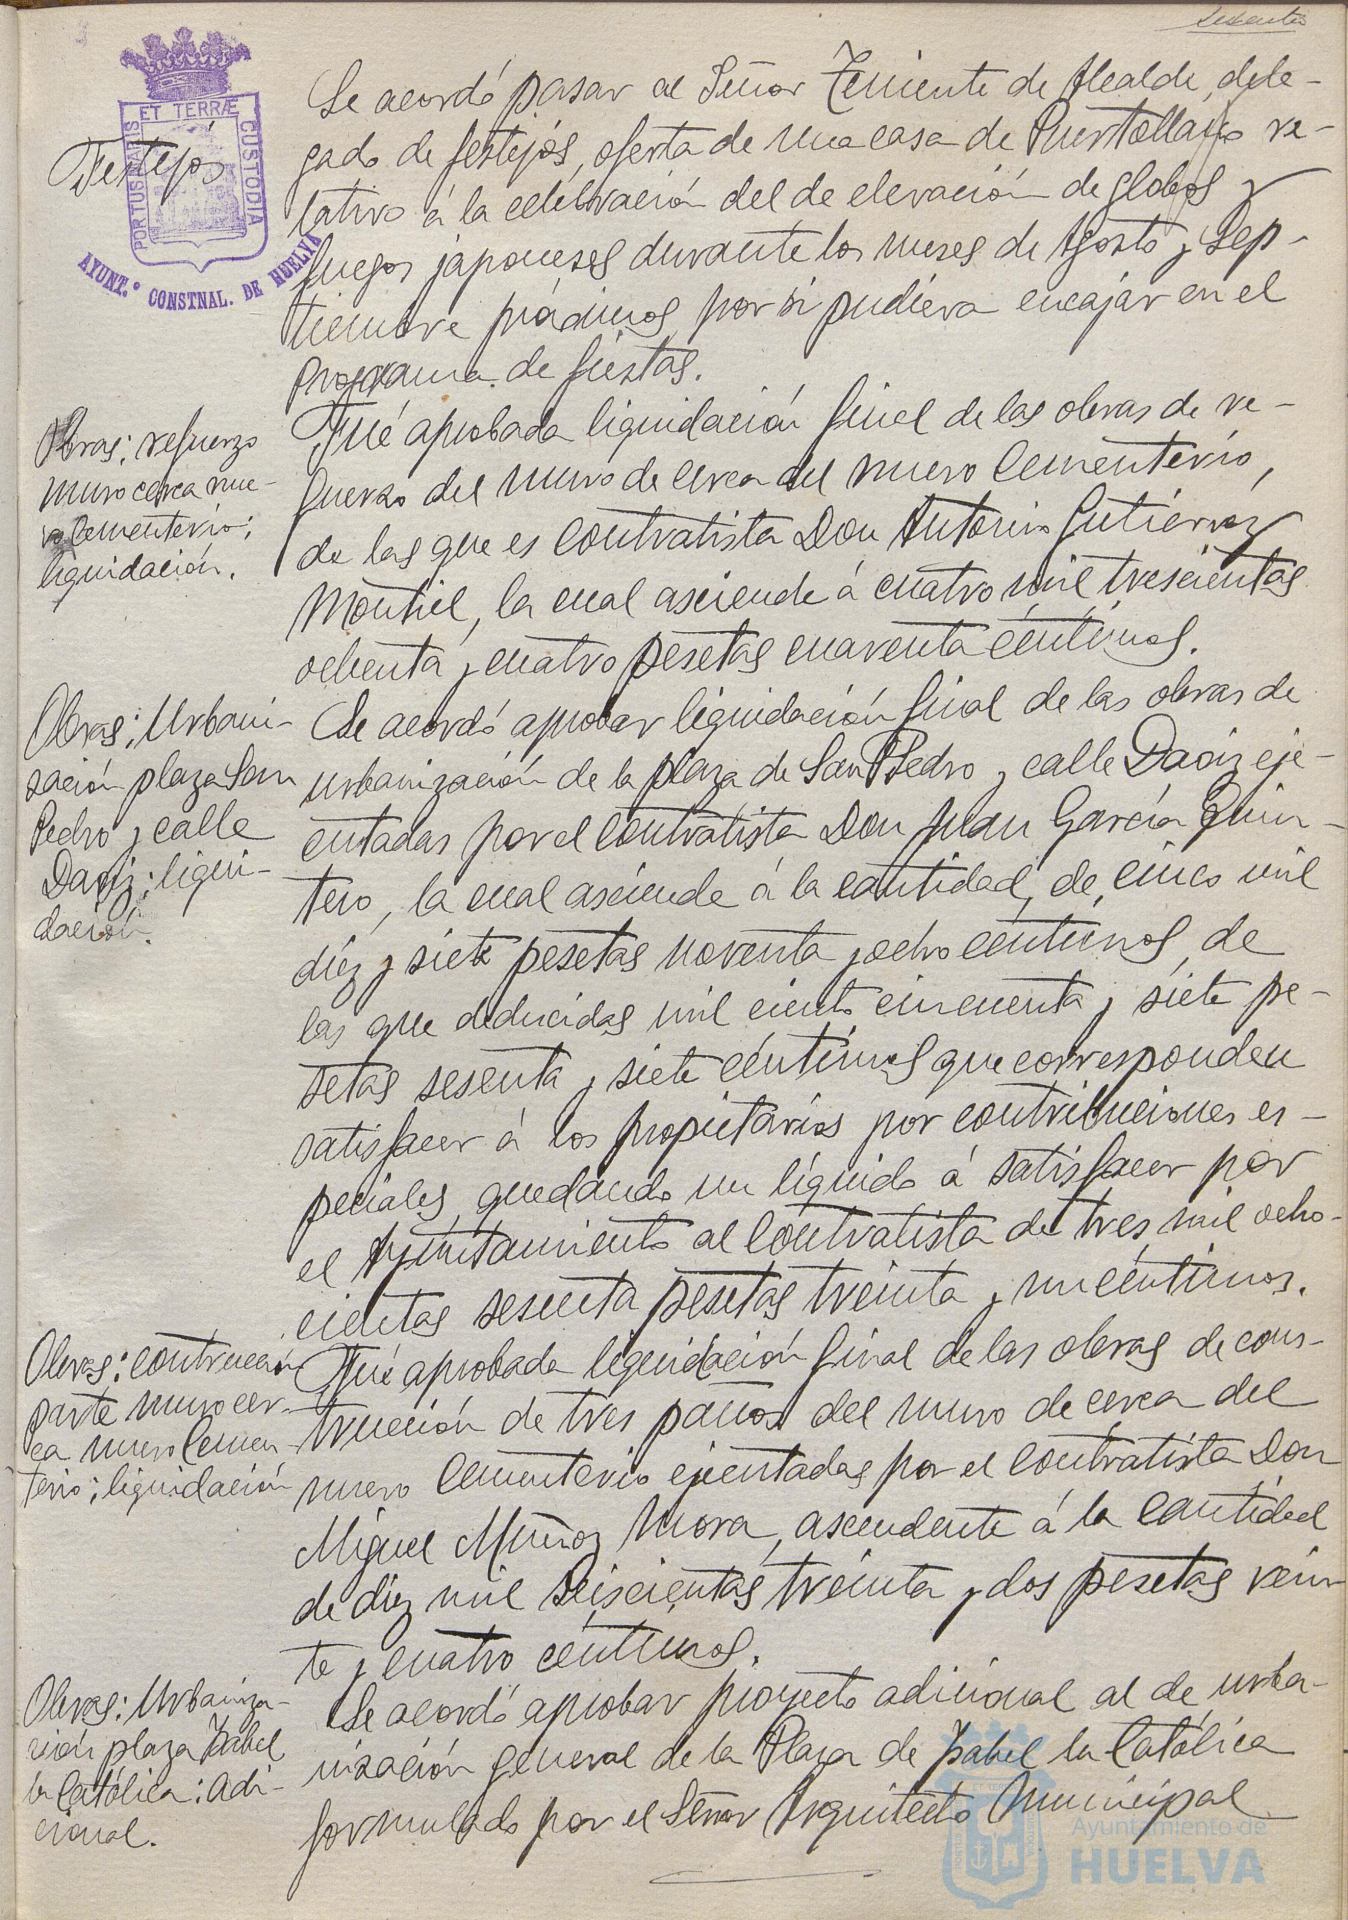 sesenta
PORTUS MARIS ET TERRÆ CUSTODIA
AYUNT.º CONSTNAL. DE HUELVA
Festejos
Se acordó pasar al Señor Teniente de Alcalde, dele-
gado de festejos, oferta de una casa de Puertollano re-
lativo á la celebración del de elevación de globos y
fuegos japoneses durante los meses de Agosto y Sep-
tiembre próximos, por si pudiera encajar en el
programa de fiestas.
Obras: refuerzo
muro cerca nue-
vo Cementerio;
liquidación.
Fué aprobada liquidación final de las obras de re-
fuerzo del muro de cerca del nuevo Cementerio,
de las que es contratista Don Antonio Gutiérrez
Montiel, la cual asciende á cuatro mil trescientas
ochenta y cuatro pesetas cuarenta céntimos.
Obras: Urbani-
zación plaza San
Pedro y calle
Daoiz: liqui-
dación.
Se acordó aprobar liquidación final de las obras de
urbanización de la plaza de San Pedro y calle Daoiz eje-
cutadas por el contratista Don Juan García Quin-
tero, la cual asciende á la cantidad de cinco mil
diez y siete pesetas noventa y ocho céntimos, de
las que deducidas mil ciento cincuenta y siete pe-
setas sesenta y siete céntimos que corresponden
satisfacer á los propietarios por contribuciones es-
peciales, quedando un líquido á satisfacer por
el Ayuntamiento al contratista de tres mil ocho-
cientas sesenta pesetas treinta y un céntimos.
Obras: contrucción
parte muro cer-
ca nuevo Cemen-
terio; liquidación
Fué aprobada liquidación final de las obras de cons-
trucción de tres paños del muro de cerca del
nuevo Cementerio ejecutadas por el contratista Don
Miguel Muñoz Mora, ascendente á la cantidad
de diez mil seiscientas treinta y dos pesetas vein-
te y cuatro céntimos.
Obras: Urbaniza-
ción plaza Isabel
la Católica: adi-
cional.
Se acordó aprobar proyecto adicional al de urba-
nización general de la Plaza de Isabel la Católica
formulado por el Señor Arquitecto Municipal
Ayuntamiento de
HUELVA